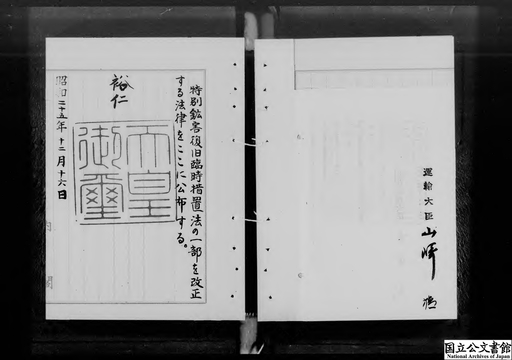 特別鉱害復旧臨時措置法の一部を改正
する法律をここに公布する。
裕仁
天皇
御璽
昭和二十五年十二月十六日
内閣
運輸大臣 山崎猛
国立公文書館
National Archives of Japan